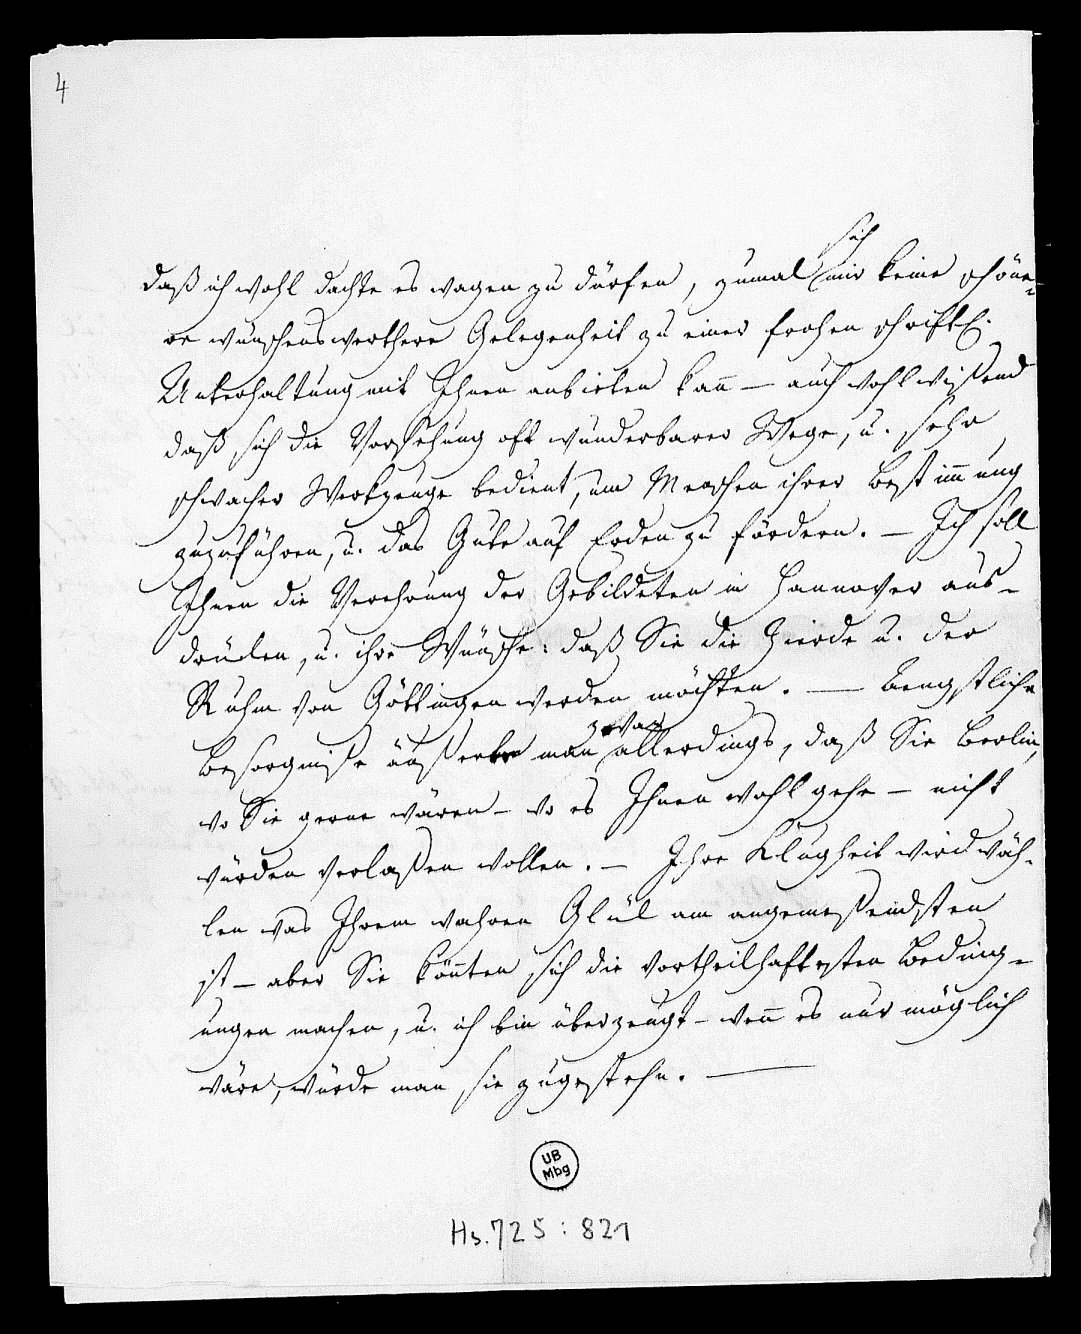 4
sich
daß ich wohl dachte es wagen zu dürfen, zumal mir keine schöne-
re wünschenswerthere Gelegenheit zu einer frohen schriftl.
Unterhaltung mit Ihnen anbieten kañ — auch wohl wißend
daß sich die Vorsehung oft wunderbarer Wege, u. sehr
schwacher Werkzeuge bedient, um Menschen ihrer Bestim̃ung
zuzuführen, u. das Gute auf Erden zu fördern. — Ich soll
Ihnen die Verehrung der Gebildeten in Hannover aus-
drücken, u. ihre Wünsche: daß Sie die Zierde u. der
Ruhm von Göttingen werden möchten. — Aengstliche
zwar
Besorgniße äußerte man allerdings, daß Sie Berlin,
wo Sie gerne wären — wo es Ihnen wohl gehe — nicht
würden verlaßen wollen. — Ihre Klugheit wird wäh-
len was Ihrem wahren Glük am angemeßendsten
ist — aber Sie köñten sich die vortheilhaftesten Beding-
ungen machen, u. ich bin überzeugt — weñ es nur möglich
wäre, würde man sie zugestehn. —
UB
Mbg
Hs. 725 : 821